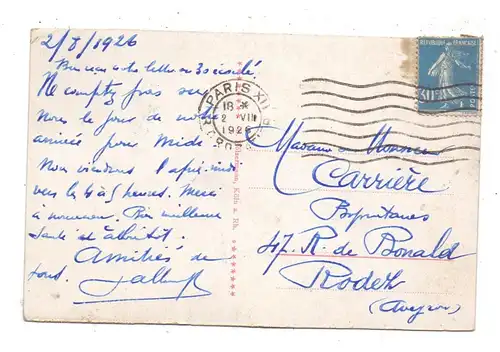 2/8/1926
Bien reçu votre lettre
Ne comptez pas sur
nous le jour de notre
arrivée pour midi.
Nous viendrons l'après-midi
vers les 4 à 5 heures. Merci
meilleure
santé et
Amitiés de
tous.
PARIS XII
18 *
2 VIII
1926
REPUBLIQUE FRANCAISE
POSTES
Köln a. Rh.
Madame et Monsieur
Carrière
Propriétaires
47. R. de Bonald
Rodez
(Aveyron)